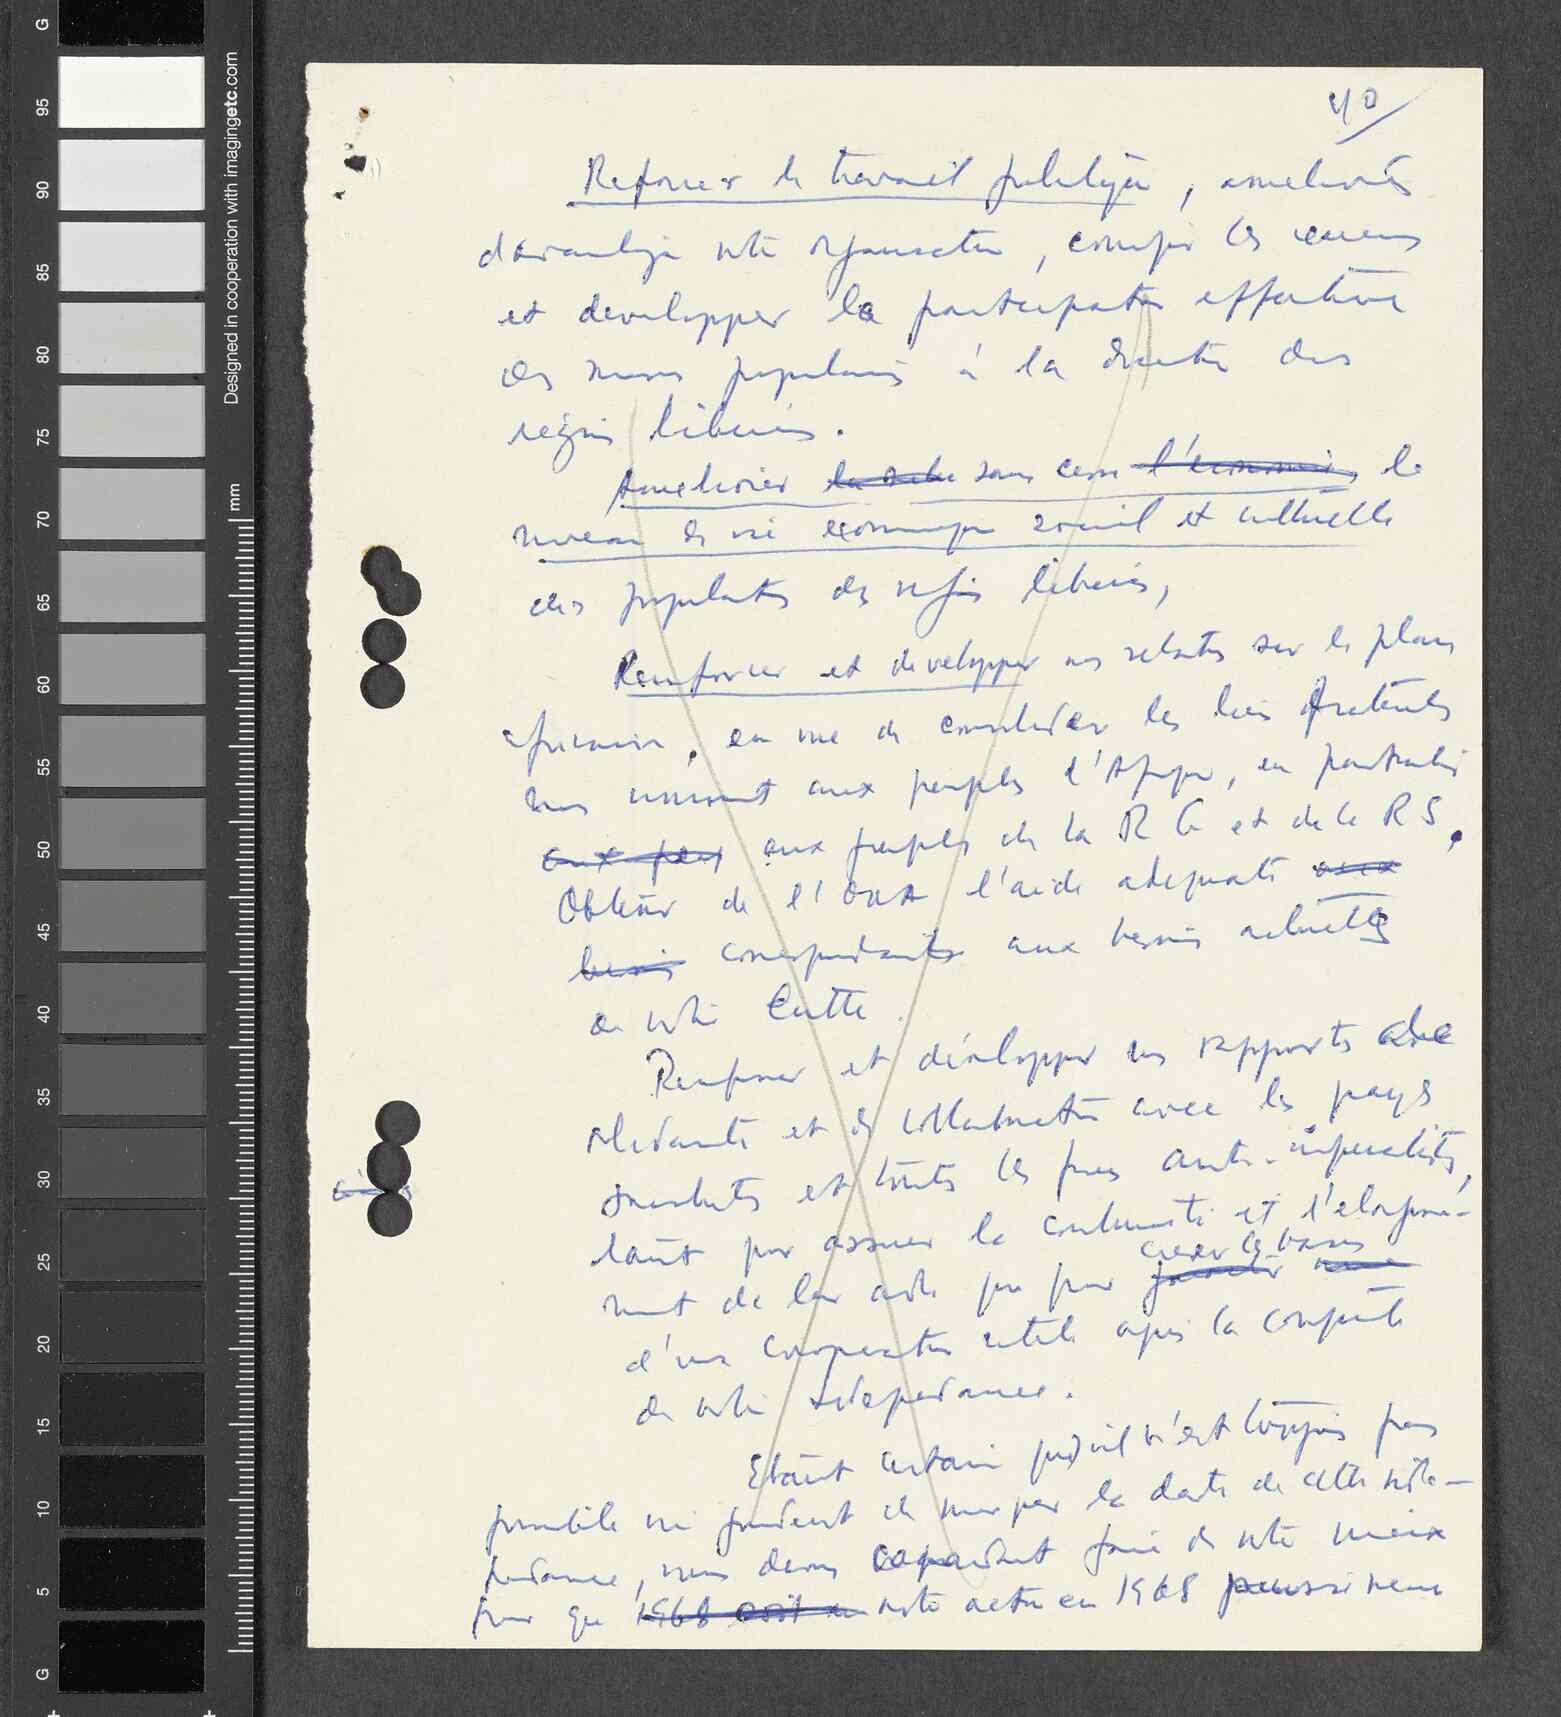 40
Renforcer le travail politique, améliorer
davantage notre organisation, corriger les erreurs
et developper la participation effective
des masses populaires à la direction des
régions libérées.
Ameliorer sans cesse l'économie le
niveau de vie economique social et culturelle
des populations des régions libérées,
Renforcer et developper nos relations sur le plan
africain, en vue de consolider les liens fraternels
nous unissant aux peuples d'Afrique, en particulier
aux peu aux peuples de la R G et de la R S.
Obtenir de l'OUA l'aide adequate aux
besoins correspondante aux besoins actuelles
de notre lutte.
Renforcer et développer nos rapports de
solidarité et de collaboration avec les pays
socialistes et toutes les forces anti-imperialistes,
tant pour assurer la continuité et l'élargisse-
creer les bases
ment de leur aide que pour
d'une cooperation utile après la conquête
de notre independance.
Etant certain qu'il n'est toujours pas
possible ni prudent de marquer la date de cette indé-
pendance, nous devons cependant faire de notre mieux
pour que 1968 soit notre action en 1968 puisse